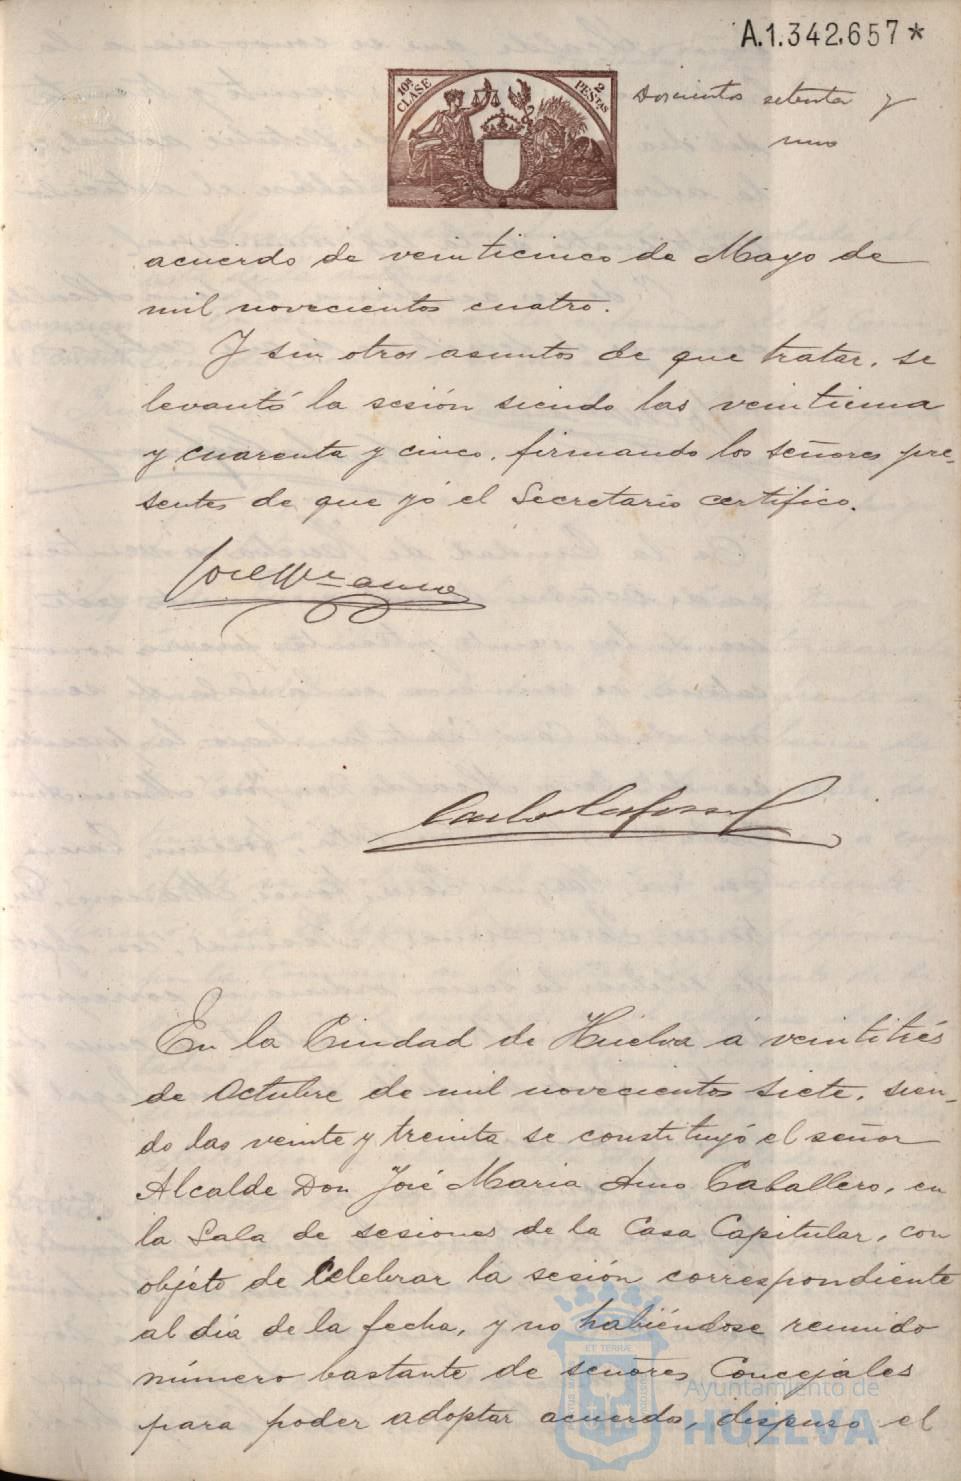 A.1.342.657*
10ª CLASE
2 PESETAS
Doscientos setenta y
uno
acuerdo de veinticinco de Mayo de
mil novecientos cuatro.
Y sin otros asuntos de que tratar, se
levantó la sesión siendo las veintiuna
y cuarenta y cinco, firmando los señores pre-
sentes de que yó el Secretario certifico.
En la Ciudad de Huelva á veintitrés
de Octubre de mil novecientos siete, sien-
do las veinte y treinta se constituyó el señor
Alcalde Don José Maria Amo Caballero, en
la Sala de sesiones de la Casa Capitular, con
objéto de Celebrar la sesión correspondiente
al dia de la fecha, y no habiéndose reunido
número bastante de señores Concejales
para poder adoptar acuerdo, dispuso el
Ayuntamiento de
HUELVA